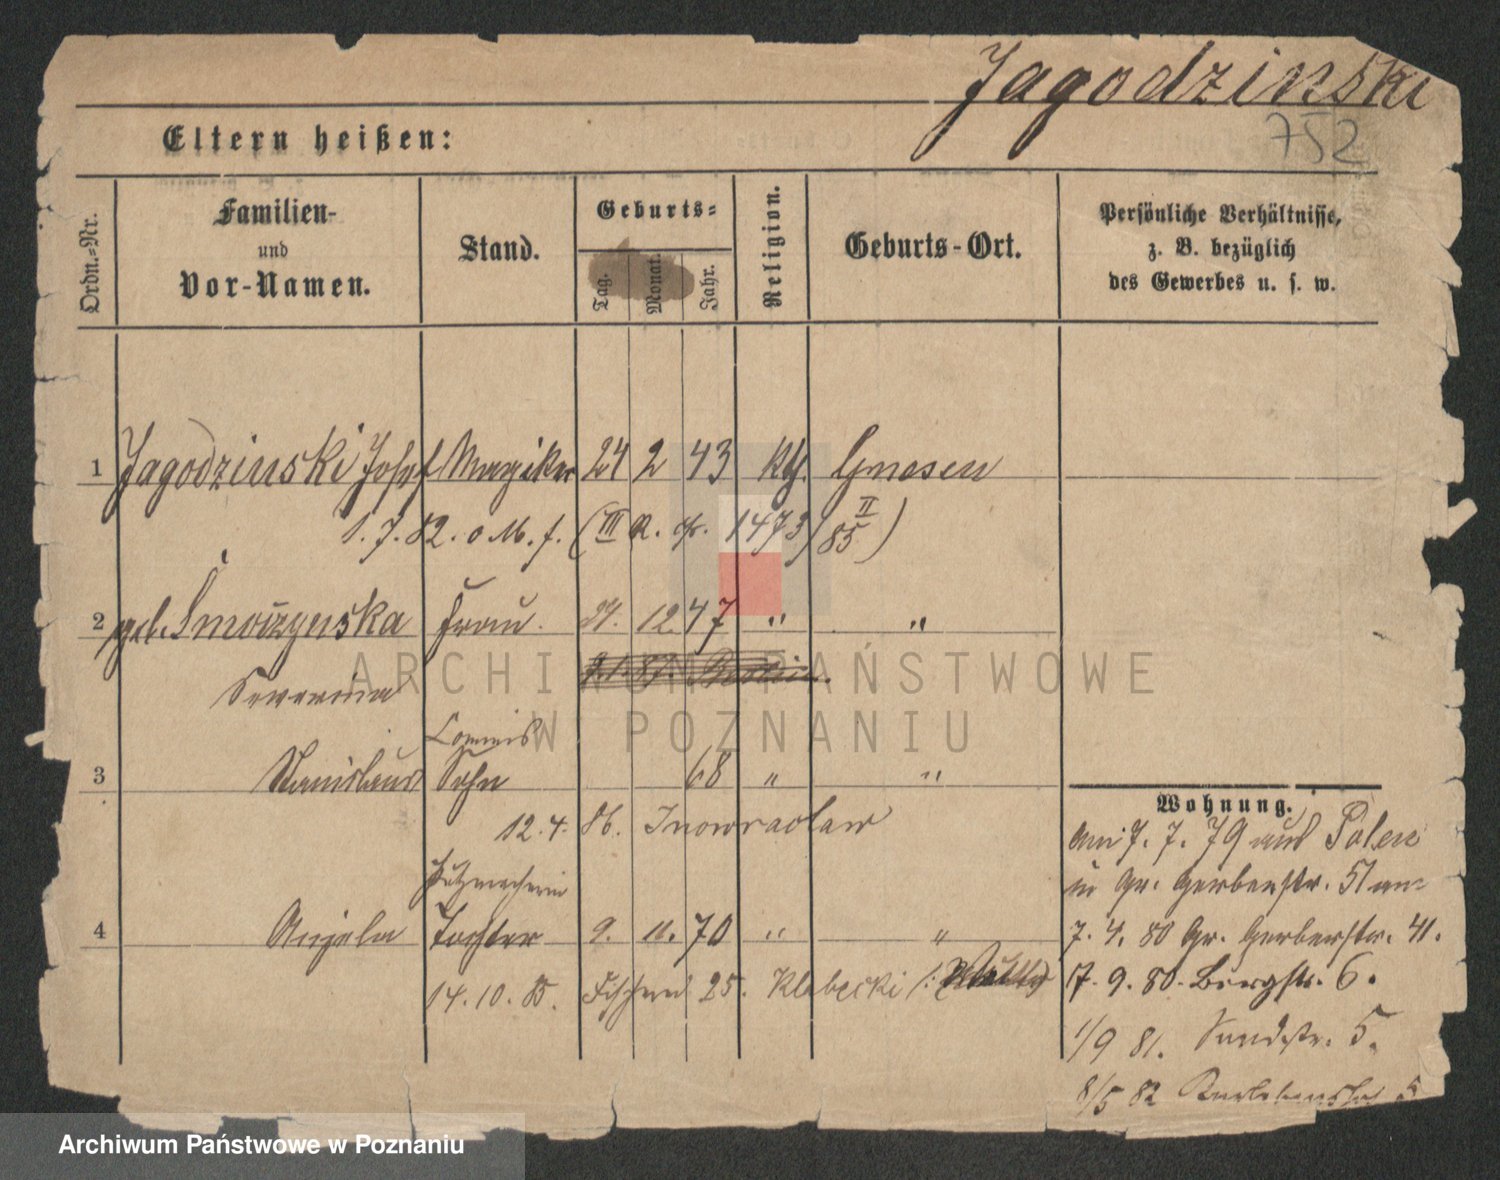 Jagodzinski
752
Eltern heißen:
Ordn.-Nr.
Familien-
und
Vor-Namen.
Stand.
Geburts-
Tag.
Monat.
Jahr.
Religion.
Geburts-Ort.
Persönliche Verhältnisse,
z. B. bezüglich
des Gewerbes u. s. w.
1 Jagodzinski Josef 24 2 43 Kth. Gnesen
1. 7. 82. o M. f. (III R. 1473/85 II)
2 geb. Frau. 24. 12. 47 " "
Severina
Commis
3 Stanislaus Sohn 68 " "
12. 4. 86. Inowraclaw
Putzmacherin
4 Angela Tochter 9. 11. 70 " "
14. 10. 85. 25. Klabecki
Wohnung.
am 7. 7. 79 aus Polen
in Gr. Gerberstr. 51 am
7. 4. 80 Gr. Gerberstr. 41.
17. 9. 80. Bergstr. 6.
1/9 81. Sandstr. 5.
8/5 82
ARCHIWUM PAŃSTWOWE
W POZNANIU
Archiwum Państwowe w Poznaniu